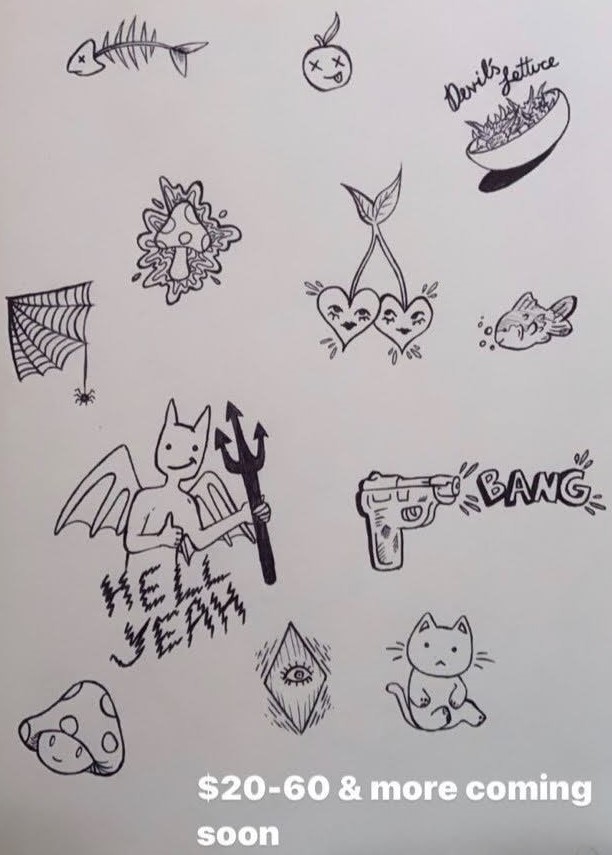 Devil's Lettuce
BANG
HELL
YEAH
$20-60 & more coming
soon